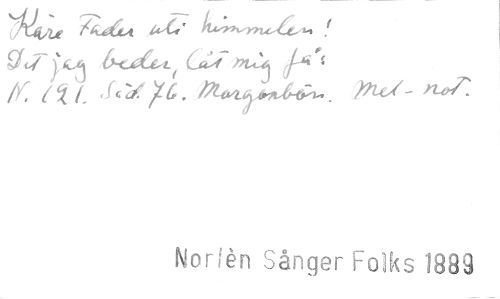 Käre Fader uti himmelen!
Det jag beder, låt mig få:
N. 191. Sid. 76. Morgonbön. Mel-not.
Norlèn Sånger Folks 1889